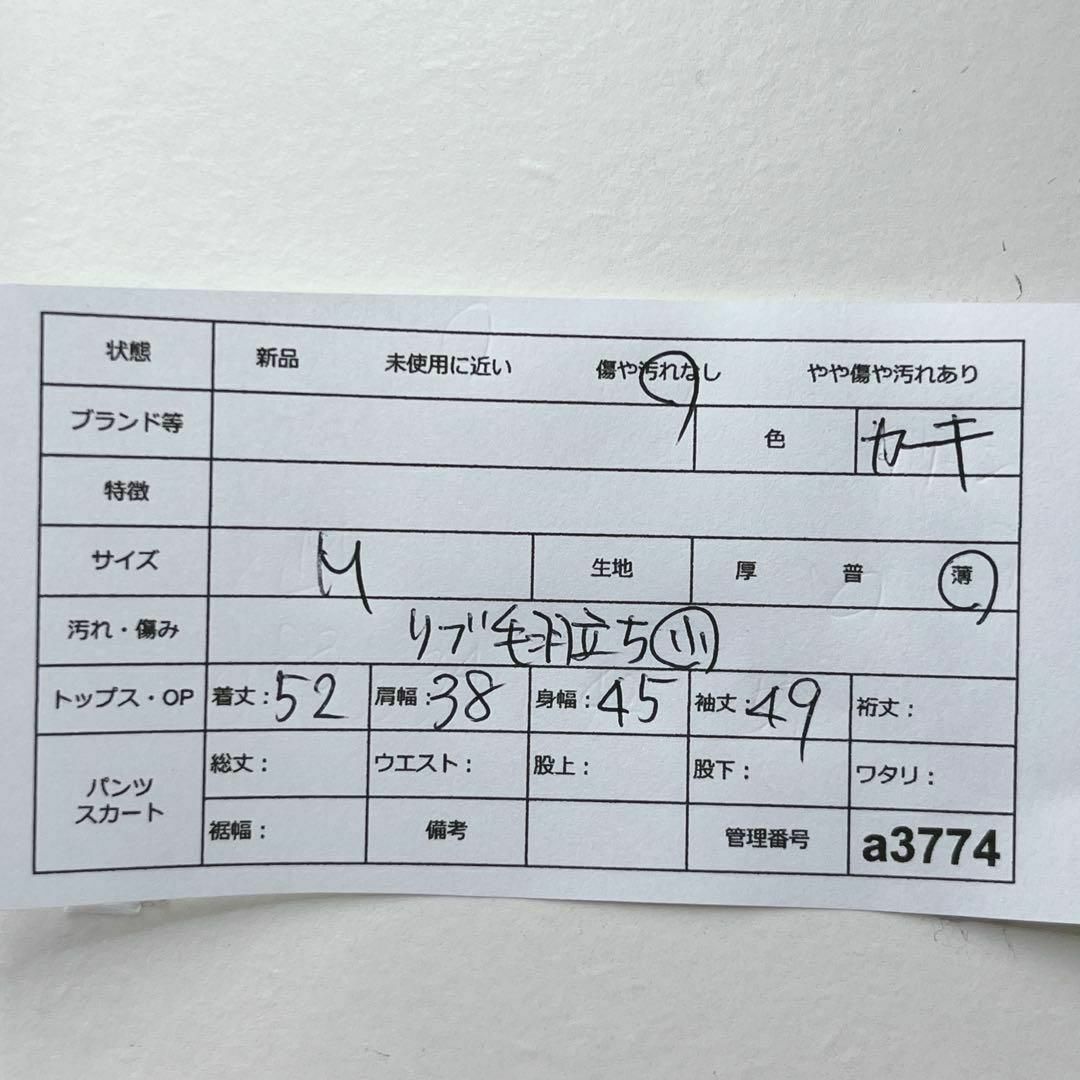 状態 新品 未使用に近い 傷や汚れなし やや傷や汚れあり
ブランド等 色 カーキ
特徴
サイズ M 生地 厚 普 薄
汚れ・傷み リブ毛羽立ち小
トップス・OP 着丈:52 肩幅:38 身幅:45 袖丈:49 裄丈:
パンツ スカート 総丈: ウエスト: 股上: 股下: ワタリ:
裾幅: 備考 管理番号 a3774